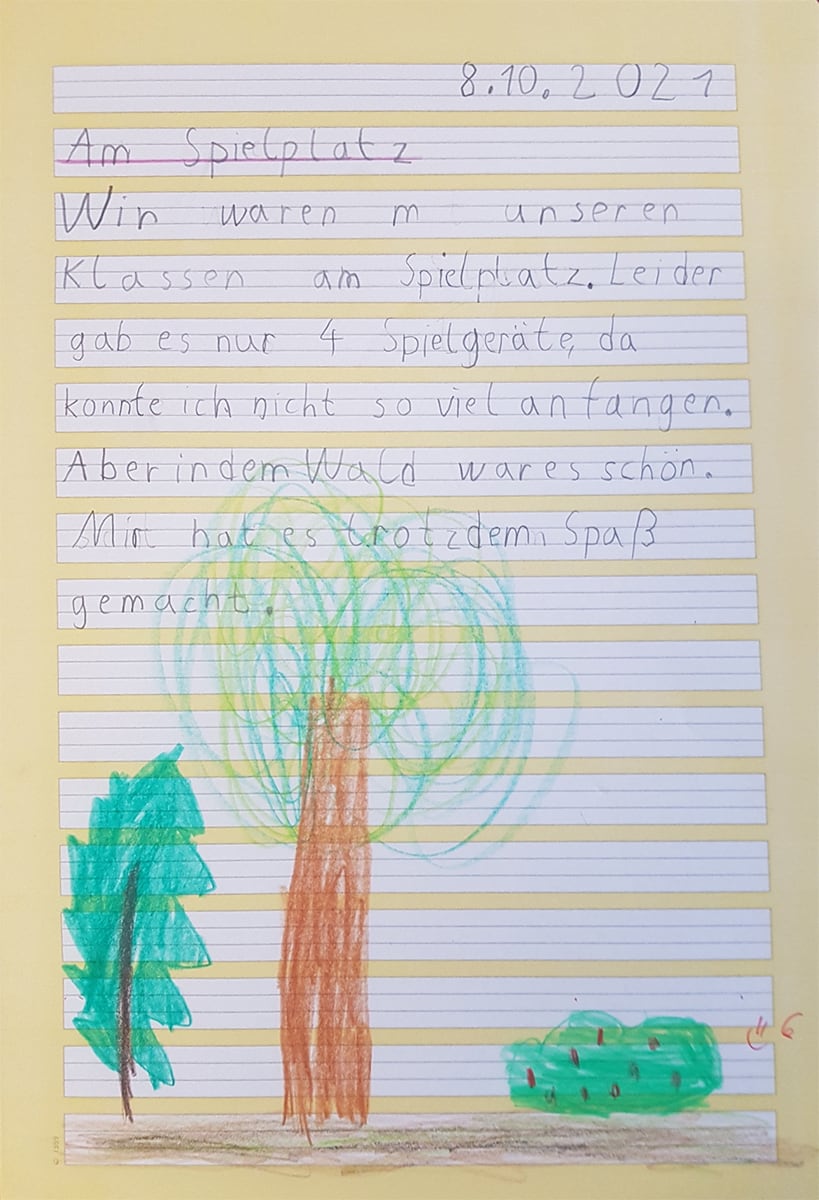 8.10.2021
Am Spielplatz
Wir waren m unseren
Klassen am Spielplatz. Leider
gab es nur 4 Spielgeräte, da
konnte ich nicht so viel anfangen.
Aber in dem Wald war es schön.
Mir hat es trotzdem Spaß
gemacht.